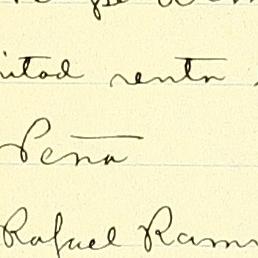 itad renta
Peña
Rafael Rami